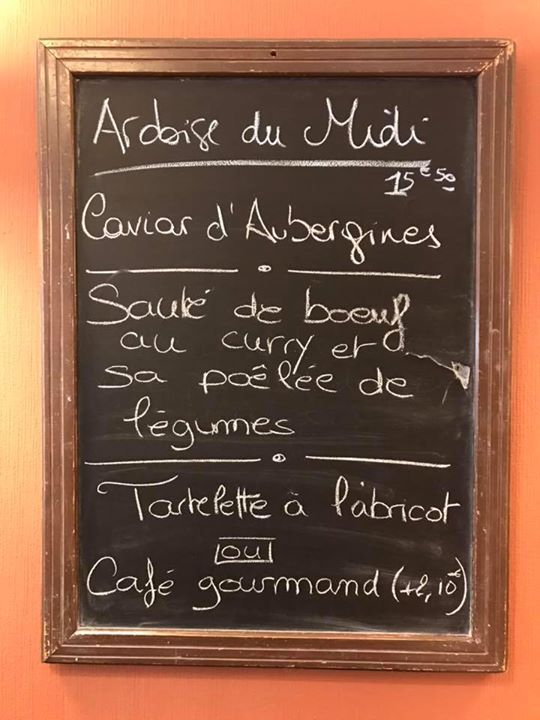 Ardoise du Midi
15€50
Caviar d'Aubergines
Sauté de boeuf
au curry et
sa poêlée de
légumes
Tartelette à l'abricot
ou
Café gourmand (+2,10€)